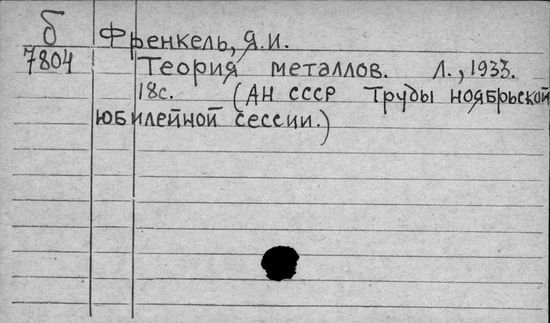 б Френкель, Я.И.
7804 Теория металлов. Л., 1933.
18с. (АН СССР Труды ноябрьской
юбилейной сессии.)